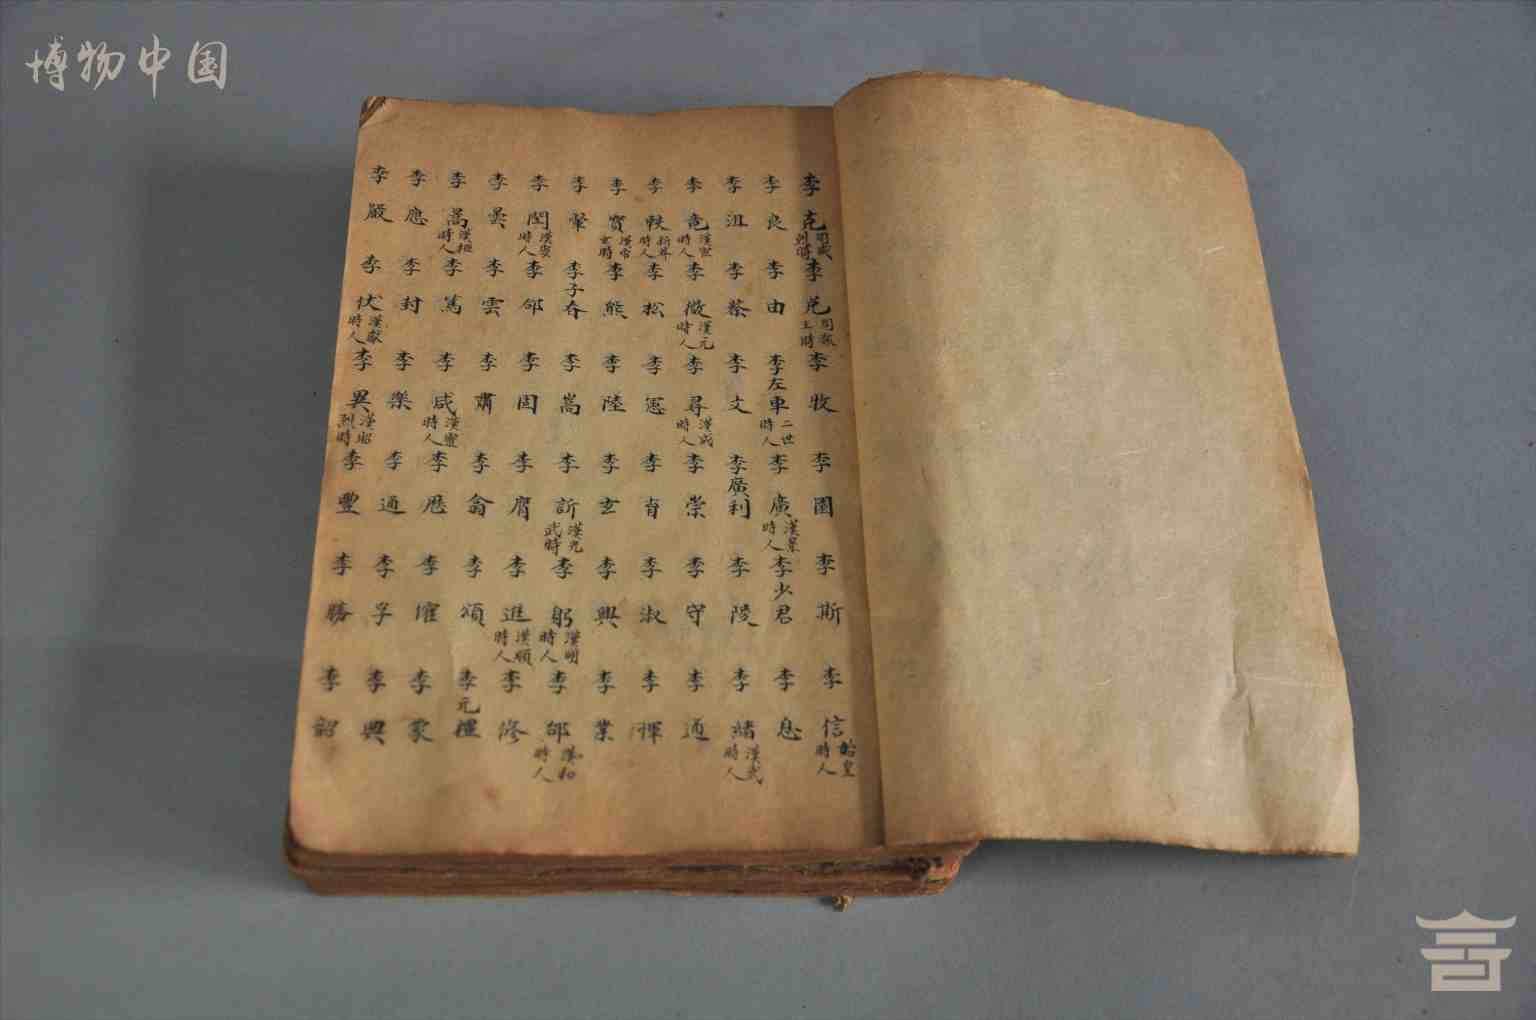 博物中国
李克 周威烈時 李兌 周赧王時 李牧 李園 李斯 李信 始皇時人
李良 李由 李左車 二世時人 李廣 漢景時人 李少君 李息
李沮 李蔡 李文 李廣利 李陵 李緒 漢武時人
李竟 漢宣時人 李微 漢元時人 李尋 漢成時人 李崇 李守 李通
李軼 新莽時人 李松 李憲 李育 李淑 李惲
李寶 漢帝玄時 李熊 李陸 李玄 李興 李業
李 李子春 李嵩 李訢 漢光武時 李躬 漢明時人 李郃 漢和時人
李閏 漢安時人 李郃 李固 李膺 李進 漢順時人 李修
李曇 李雲 李肅 李翕 李頌 李元禮
李暠 漢桓時人 李篤 李咸 漢靈時人 李歷 李傕 李蒙
李應 李封 李樂 李通 李孚 李典
李嚴 李伏 漢獻時人 李異 漢昭烈時 李豐 李勝 李韶